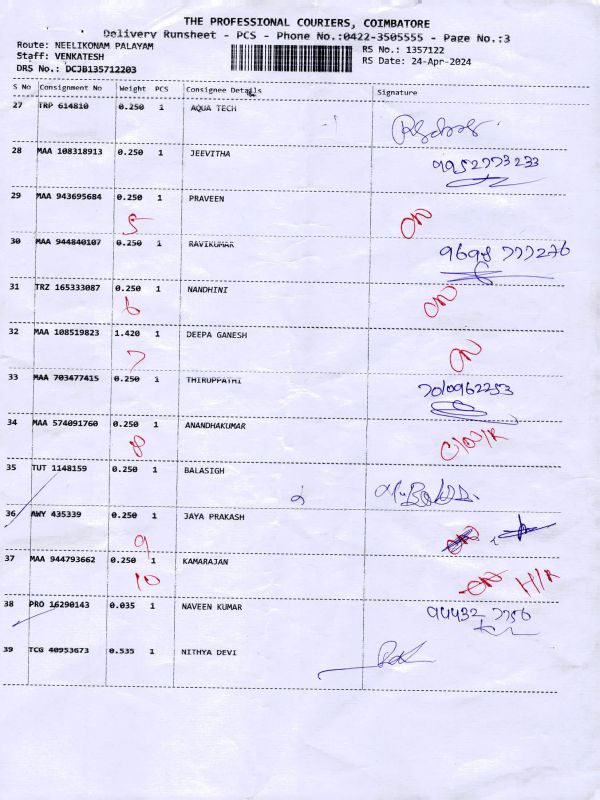 THE PROFESSIONAL COURIERS, COIMBATORE
Delivery Runsheet - PCS - Phone No.:0422-3505555 - Page No.:3
Route: NEELIKONAM PALAYAM RS No.: 1357122
Staff: VENKATESH RS Date: 24-Apr-2024
DRS No.: DCJB135712203
S No Consignment No Weight PCS Consignee Details Signature
27 TRP 614810 0.250 1 AQUA TECH
28 MAA 108318913 0.250 1 JEEVITHA 9952773233
29 MAA 943695684 0.250 1 PRAVEEN
5
30 MAA 944840107 0.250 1 RAVIKUMAR
31 TRZ 165333087 0.250 1 NANDHINI
6
32 MAA 108519823 1.420 1 DEEPA GANESH
7
33 MAA 703477415 0.250 1 THIRUPPATHI 7010962253
34 MAA 574091760 0.250 1 ANANDHAKUMAR
8
35 TUT 1148159 0.250 1 BALASIGH
36 AWY 435339 0.250 1 JAYA PRAKASH
9
37 MAA 944793662 0.250 1 KAMARAJAN
10
38 PRO 16290143 0.035 1 NAVEEN KUMAR
39 TCG 40953673 0.535 1 NITHYA DEVI